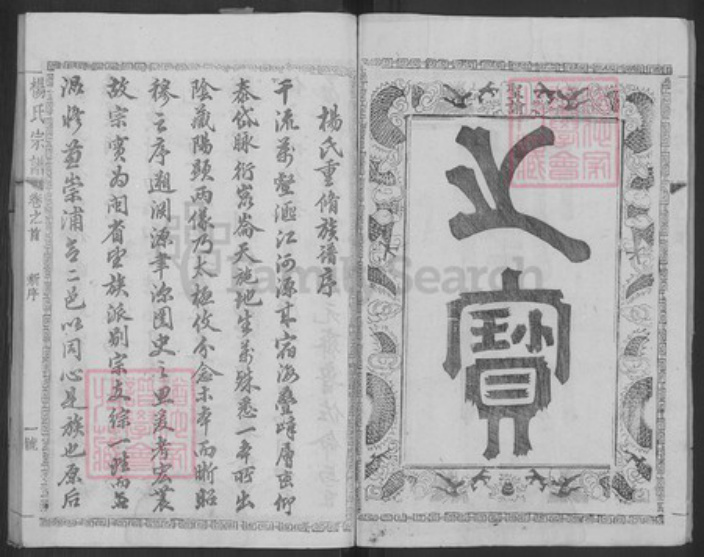 之寶
楊氏重脩族譜序
千流萬壑滙江河源耳宿海叠嶂層巒仰
泰岱脉衍崑崙天施地生萬殊悉一本所出
陰藏陽顯兩儀乃太極攸分念木本而晰昭
穆之序遡淵源聿深圖史之思爰考宏農
故宗實為閩省望族派別宗支綜一
崇浦
二邑以同心是族也原后
楊氏宗譜
卷之首
新序
一號
FamilySearch